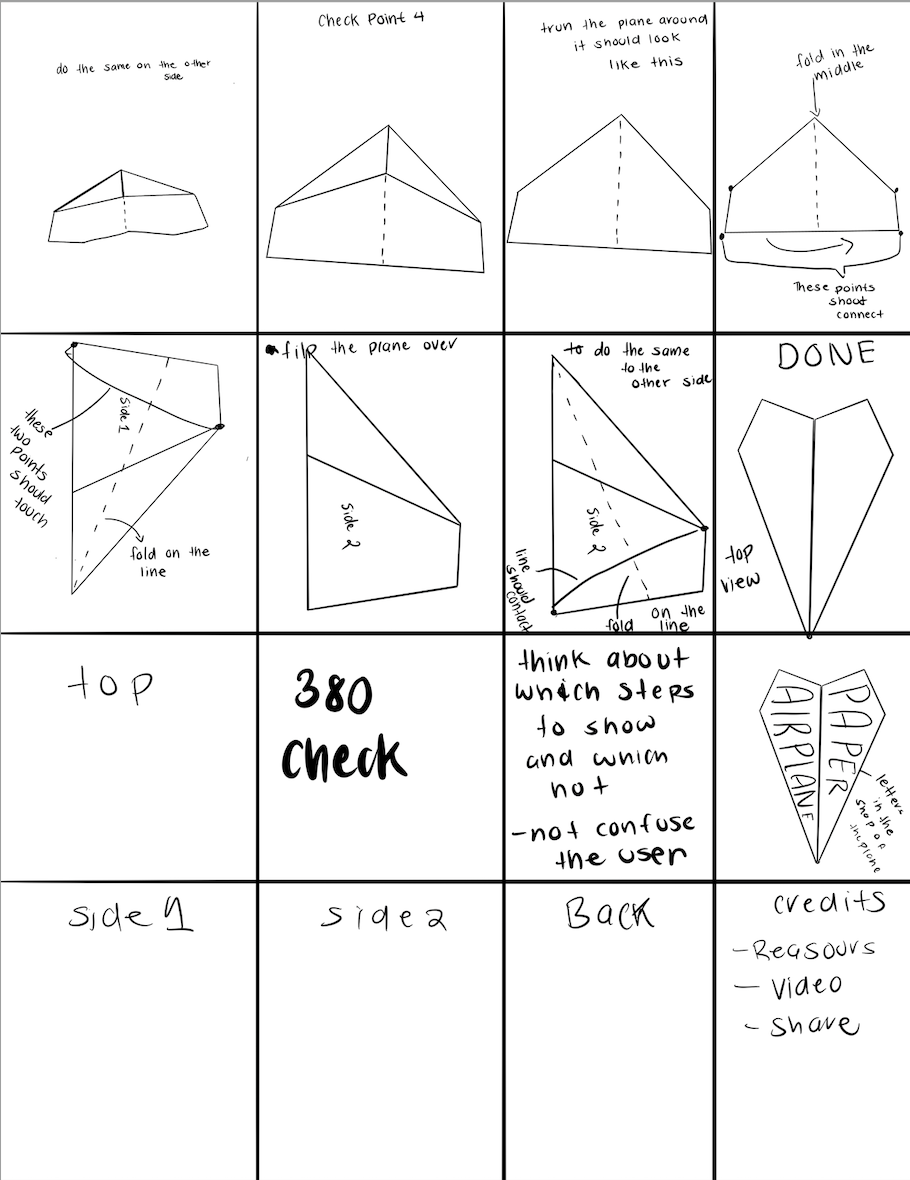 do the same on the other
side
Check Point 4
trun the plane around
it should look
like this
fold in the
middle
These points
shout
connect
these
two
points
should
touch
Side 1
fold on the
line
flip the plane over
Side 2
to do the same
to the
other side
Side 2
line
should
contact
fold on the
line
DONE
top
view
top
380
check
think about
which steps
to show
and which
not
-not confuse
the user
PAPER
AIRPLANE
letters
in the
shap of
the plane
side 1
side 2
Back
credits
- Reasours
- Video
- Share